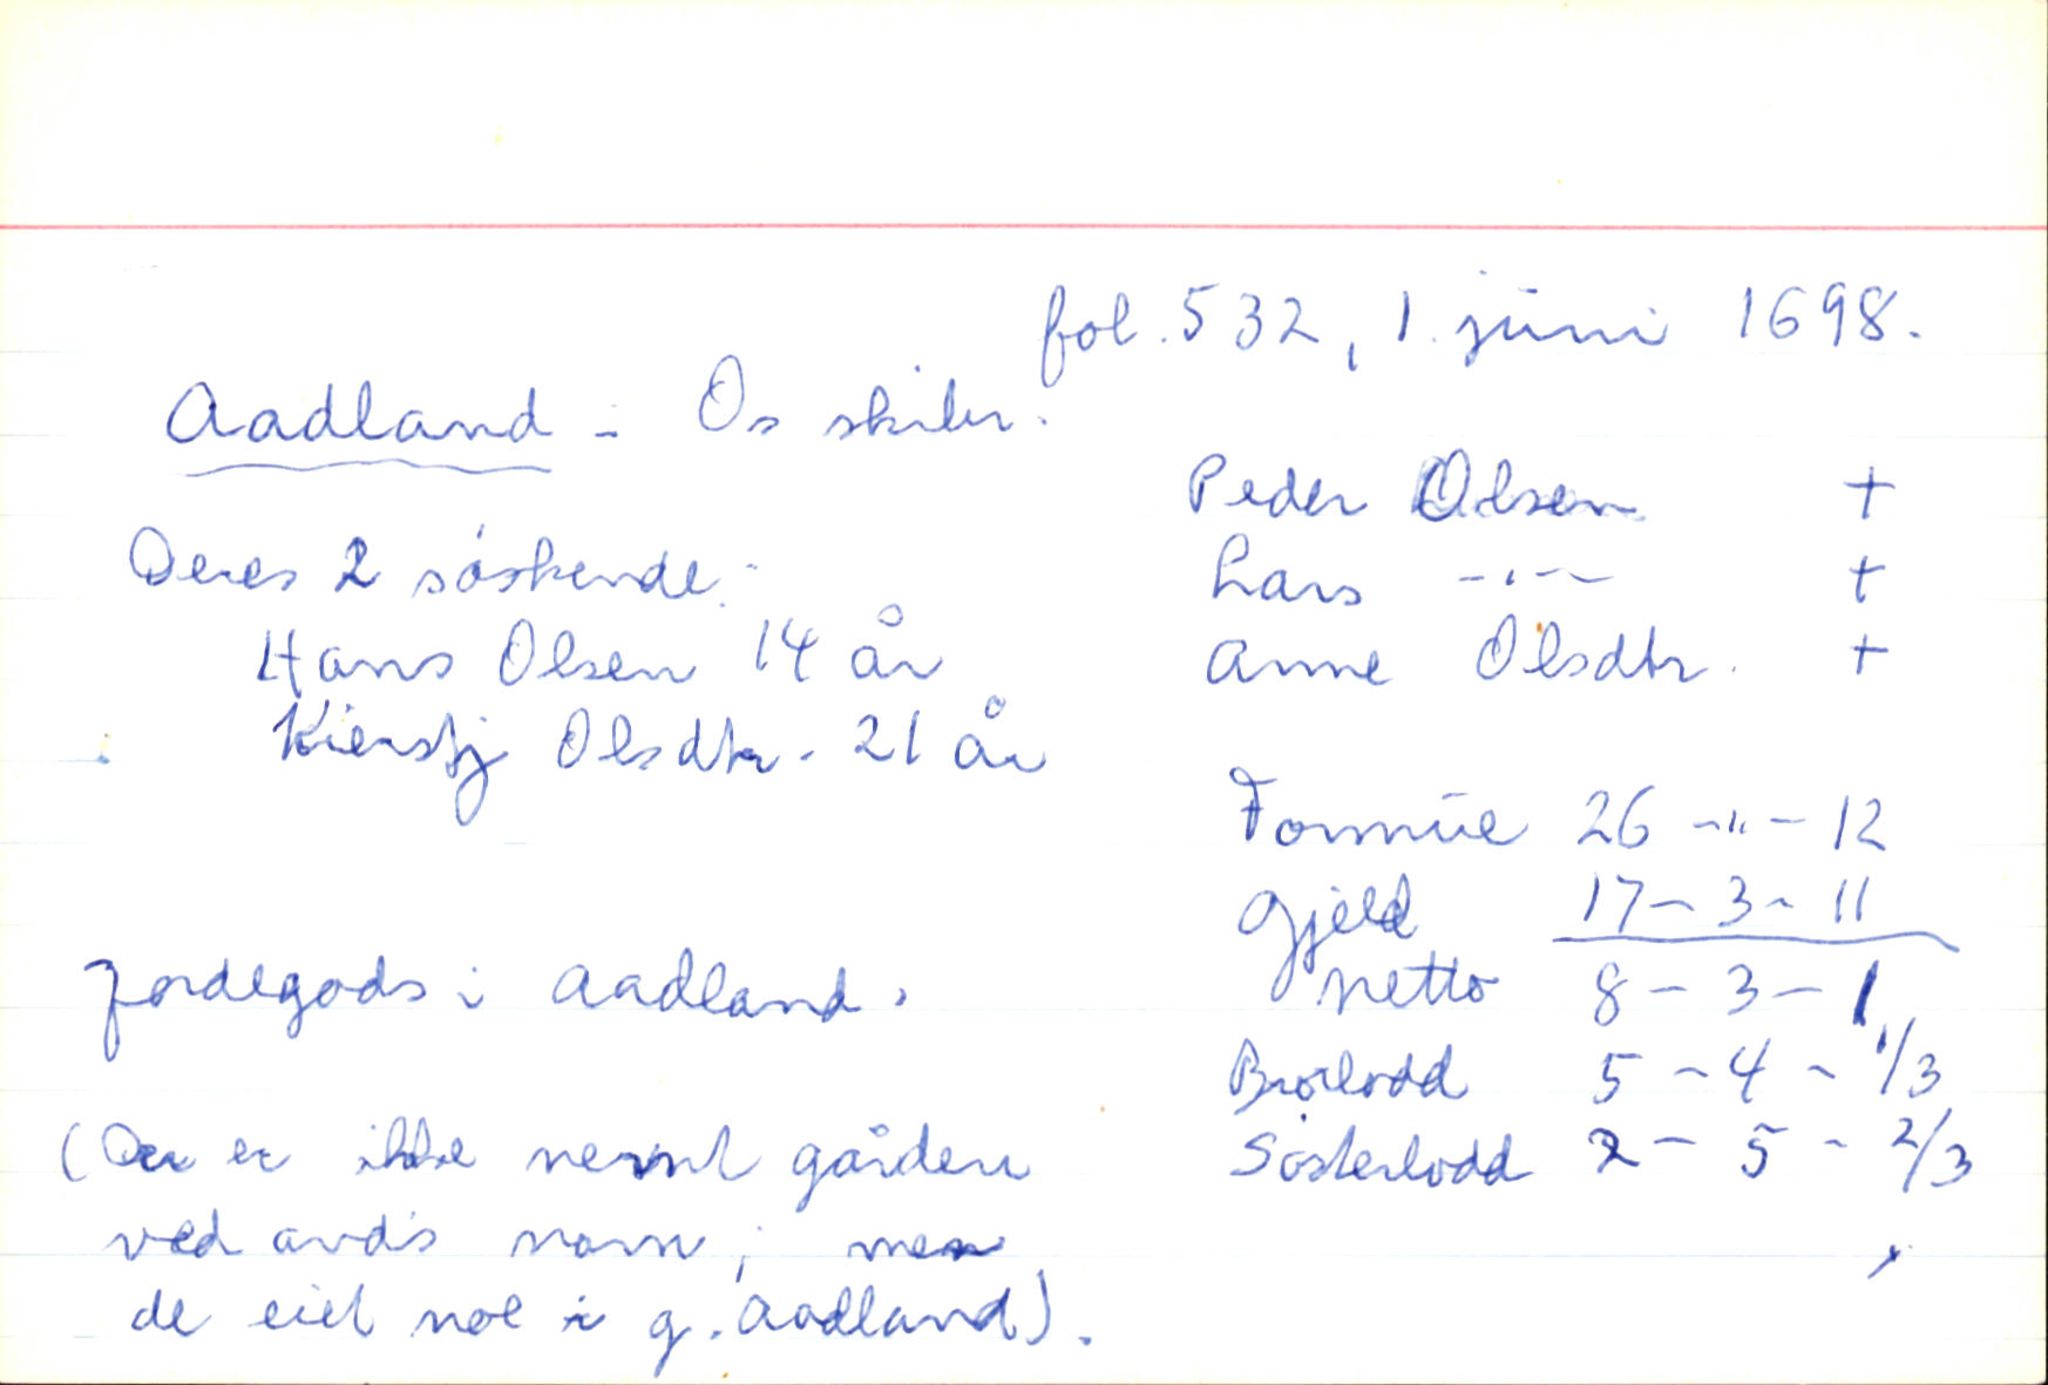 fol. 532, 1. juni 1698.
Aadland - Os skibr.
Peder Olsen +
Lars -"- +
Anne Olsdtr. +
Deres 2 søskende:
Hans Olsen 14 år
Kierstj Olsdtr. 21 år
Formue 26 - " - 12
Gjeld 17 - 3 - 11
netto 8 - 3 - 1
Brorlodd 5 - 4 - 1/3
Søsterlodd 2 - 5 - 2/3
Jordegods i Aadland.
(Der er ikke nevnt gården
ved avd's navn, men
de eiet noe i g. Aadland).